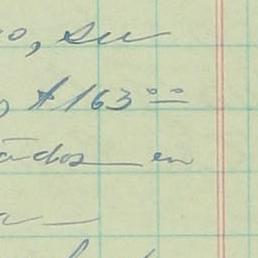 o, su
$163.00
ados en
a